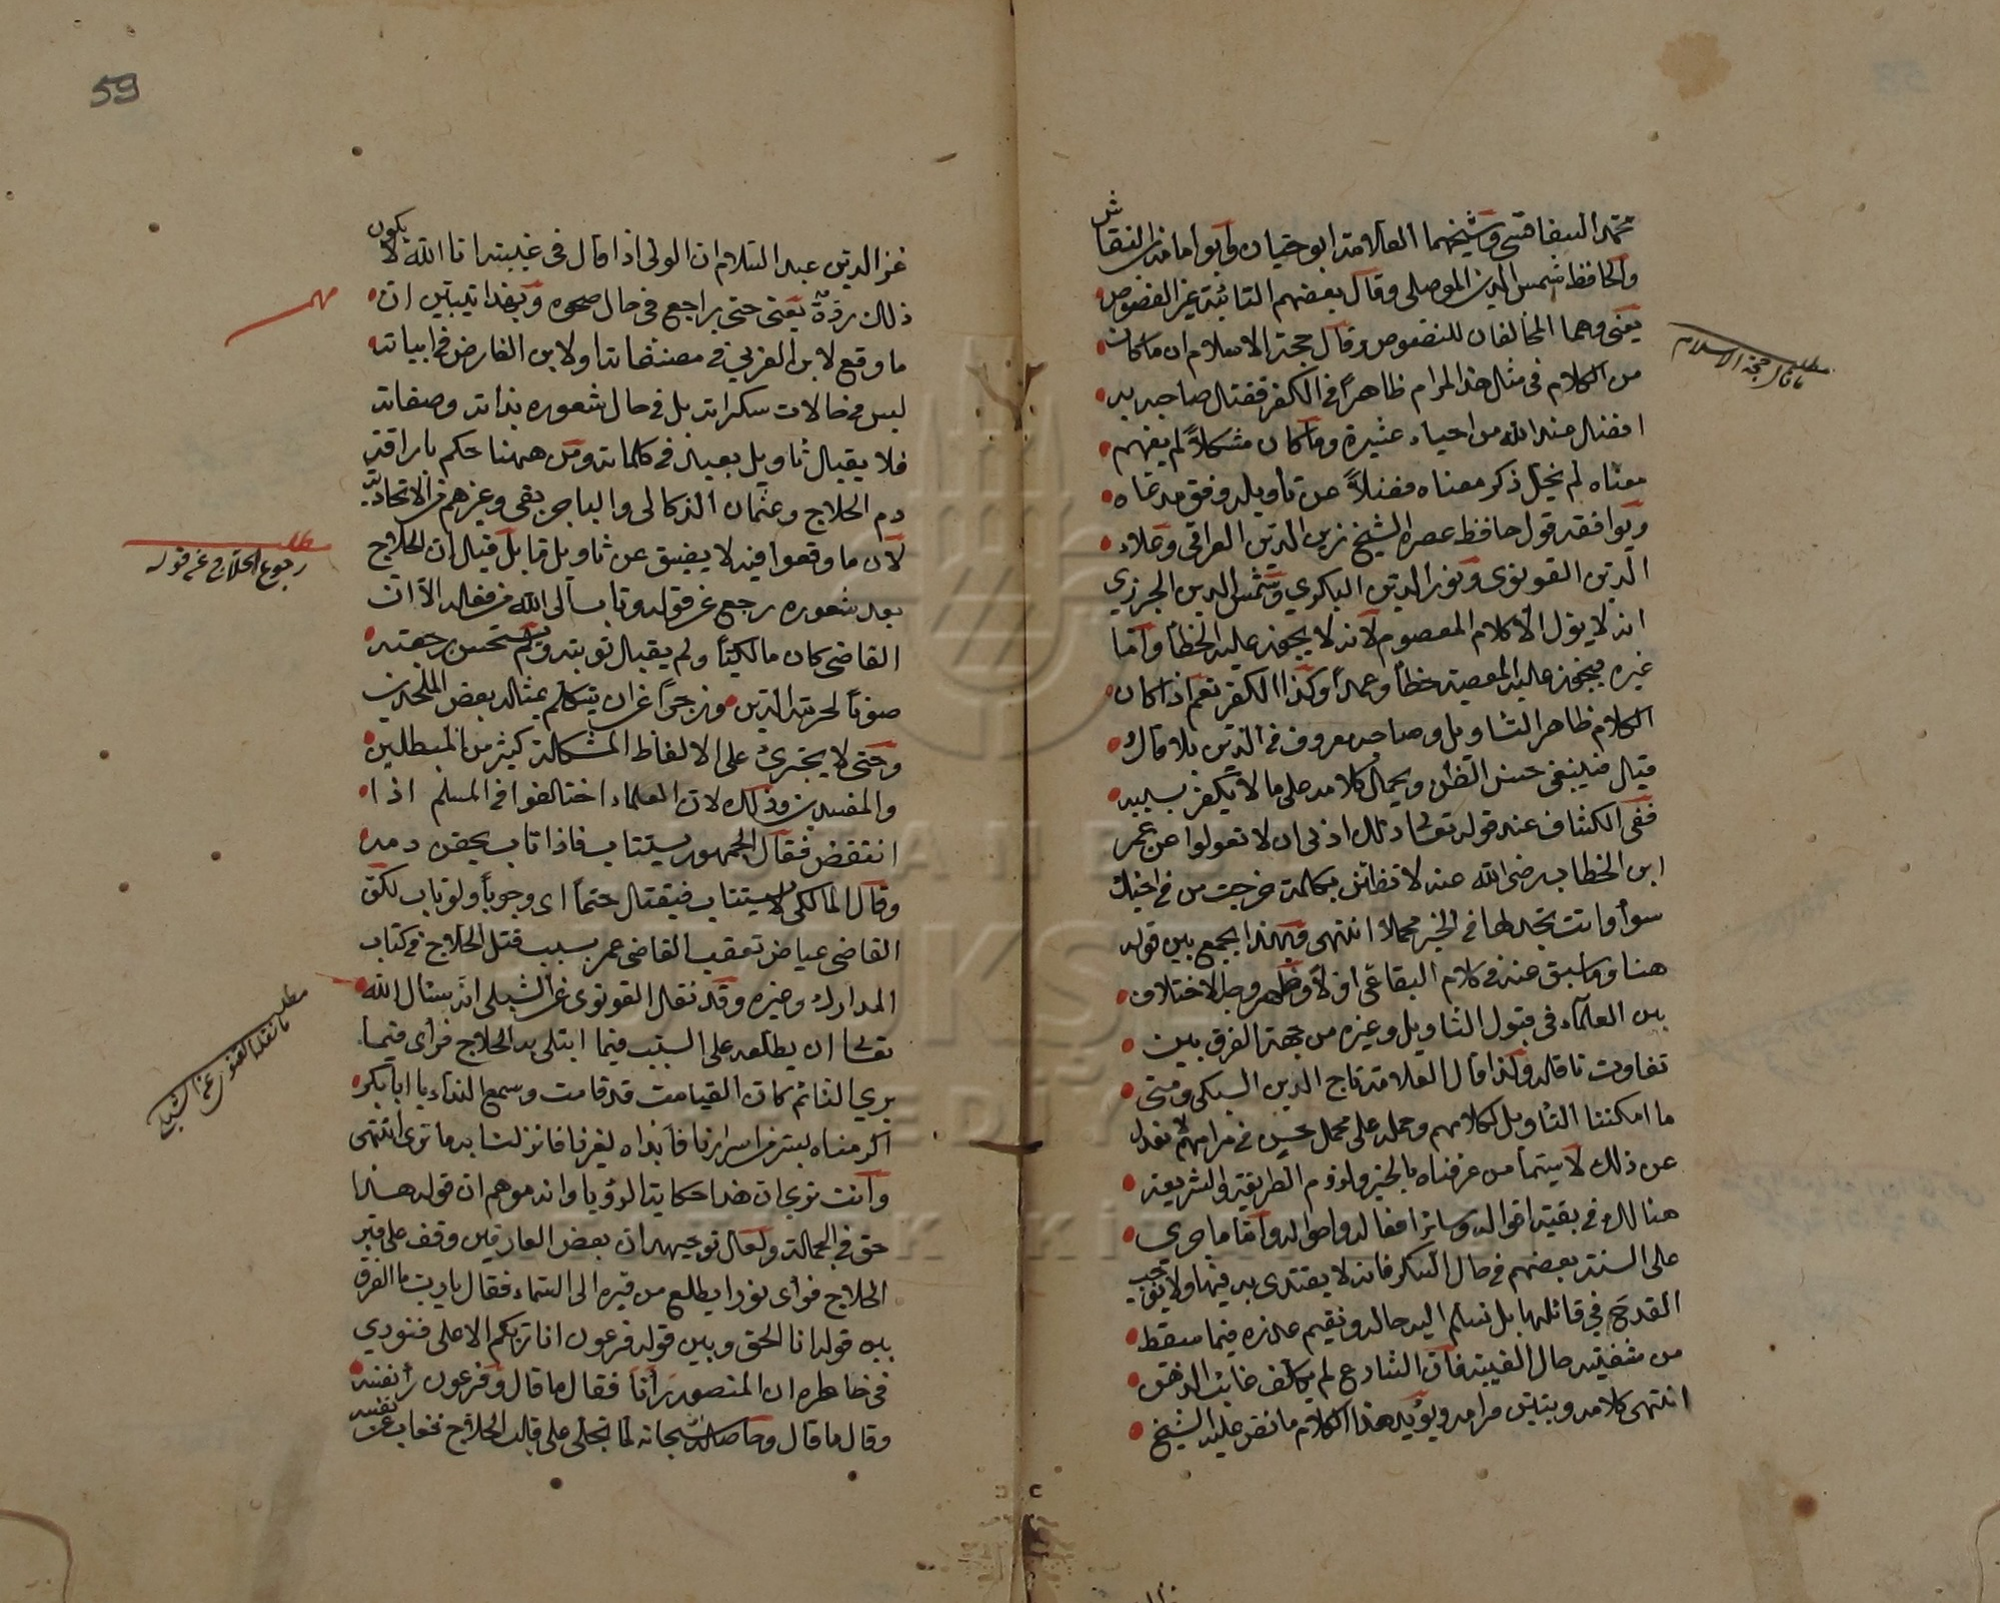 محمد السفاقسي وشيخهما العلامة ابو حيان وابو امامة بن النقاش
والحافظ شمس الدين الموصلي وقال بعضهم التائية غير الفصوص
يعني وهما المخالفان للنصوص وقال حجة الاسلام ان ما كان
من الكلام في مثل هذا المرام ظاهرا في الكفر فقتل صاحبه به
افضل عند الله من احياء عشيرة وما كان مشكلا لم يفهم
معناه لم يحل ذكر معناه فضلا عن تأويله وفق مدعاه
ويوافقه قول حافظ عصره الشيخ زين الدين العراقي وعلاء
الدين القونوي ونور الدين البكري وشمس الدين الجزري
انه لا يؤل الا كلام المعصوم لانه لا يجوز عليه الخطأ واما
غيره فيجوز عليه المعصية خطأ وعمدا وكذا الكفر نعم اذا كان
الكلام ظاهر التأويل وصاحبه معروف في الدين بلا قال و
قيل فينبغي حسن الظن ويحمل كلامه على ما لا يكفر بسببه
ففي الكشاف عند قوله تعالى ذلك ادنى ان لا تعولوا عن عمر
ابن الخطاب رضي الله عنه لا تظانن بكلمة خرجت من في اخيك
سوأ وانت تجد لها في الخير محملا انتهى وبهذا يجمع بين قوله
هنا وما سبق عنه في كلام البقاعي اولا وظهر وجه الاختلاف
بين العلماء في قبول التأويل وغيره من جهة الفرق بين
تفاوت ما قاله وكذا قال العلامة تاج الدين السبكي ومتى
ما امكننا التأويل لكلامهم وحمله على محمل حسن في مرامهم لا نعدل
عن ذلك لا سيما من عرفناه بالخير ولزوم الطريقة والشريعة
هنالك في بقية اقواله وسائر افعاله واحواله واما ما جرى
على السنة بعضهم في حال السكر فانه لا يقتدى به فيها ولا يوجب
القدح في قائلها بل نسلم اليه حاله ونقيم عذره فيما سقط
من شفتيه حال الغيبة فان الشارع لم يكلف غائب الذهن
انتهى كلامه وتبين مرامه ويؤيد هذا الكلام ما نص عليه الشيخ
مطلب
ما قال حجة الاسلام
59
عز الدين عبد السلام ان الولي اذا قال في غيبته انا الله لا يكون
ذلك ردة يعني حتى يراجع في حال صحوه وبهذا تبين ان
ما وقع لابن العربي في مصنفاته ولابن الفارض في ابياته
ليس في حالات سكراته بل في حال شعوره بذاته وصفاته
فلا يقبل تأويل بعيد في كلماته ومن ههنا حكم باراقة
دم الحلاج وعثمان الذكالي والباجريقي وغيرهم من الاتحادية
لان ما وقعوا فيه لا يضيق عن تأويل قابل قيل ان الحلاج
بعد شعوره رجع عن قوله وتاب الى الله من فعله الا ان
القاضي كان مالكيا ولم يقبل توبته ولم يستحسن رجعته
صونا لحرمة الدين وزجرا عن ان يتكلم بمثاله بعض الملحدين
وحتى لا يجترئ على الالفاظ المشكلة كثير من المبطلين
والمفسدين وذلك لان العلماء اختلفوا في المسلم اذا
انتقض فقال الجمهور يستتاب فاذا تاب يحقن دمه
وقال المالكي لا يستتاب فيقتل حتما اي وجوبا ولو تاب لكن
القاضي عياض تعقب القاضي عمر بسبب قتل الحلاج في كتاب
المدارك وغيره وقد نقل القونوي عن الشبلي انه سئال الله
تعالى ان يطلعه على السبب فيما ابتلي به الحلاج فرأى فيما
يرى النائم كان القيامت قد قامت وسمع النداء يا ابا بكر
اكرمناه بسر من اسرارنا فابداه لغيرنا فانزلنا به ما ترى انتهى
وانت ترى ان هذا حكاية الرؤيا وانه موهم ان قوله هذا
حق في الجملة ولعل توجيهه ان بعض العارفين وقف على قبر
الحلاج فرأى نورا يطلع من قبره الى السماء فقال يا رب ما الفرق
بين قوله انا الحق وبين قوله فرعون انا ربكم الاعلى فنودي
في خاطره ان المنصور رآنا فقال ما قال وفرعون رأ نفسه
وقال ما قال وحاصله انه سبحانه لما تجلى على قلب الحلاج فغاب عن نفسه
مهم
مطلب
رجوع الحلاج عن قوله
مطلب
ما نقله القونوي عن الشبلي